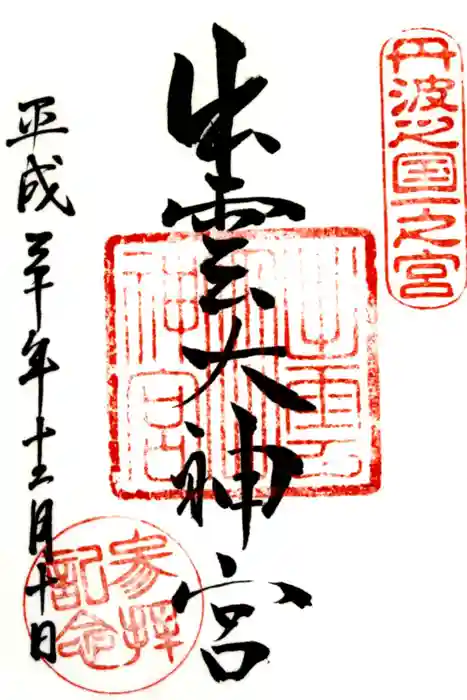 丹波之国一之宮
出雲大神宮
出雲大神宮
平成三十年十二月十日
参拝記念